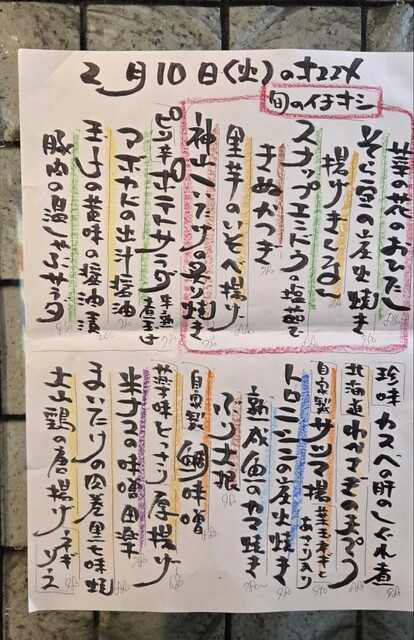 2月10日(火)のオススメ
旬のイチオシ
菜の花のおひたし
そら豆の炭火焼き
揚げぎんなん
スナップエンドウの塩茹で
きぬかつぎ
里芋のいそべ揚げ
神山しいたけの炭焼き
ピン辛ポテトサラダ
半熟煮玉子
アボカドの出汁醤油
玉子の黄味の醤油漬
豚肉の温しゃぶサラダ
珍味 カスベの肝のしぐれ煮
北海道わかさぎの天ぷら
自家製サツマ揚 葉玉ネギと あさり入り
トロニシンの炭火焼き
熟成魚のカマ焼き
ぶり大根
自家製 鯛味噌
薬味どっさり厚揚げ
米ナスの味噌田楽
まいたけの肉巻黒七味焼
大山鶏の唐揚げ ネギソース